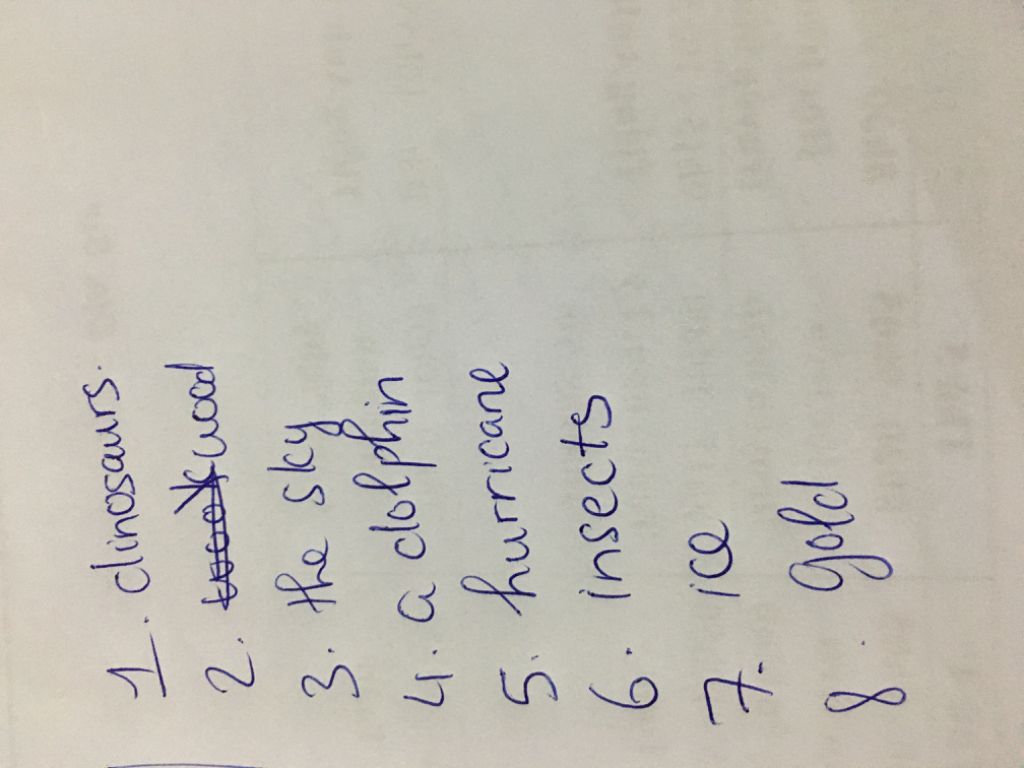 1. dinosaurs.
2. wood
3. the sky
4. a dolphin
5. hurricane
6. insects
7. ice
8. gold